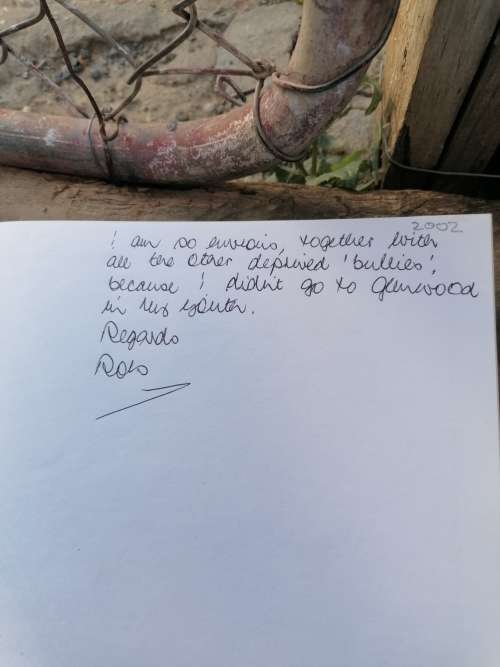 2002
I am so envious, together with
all the other deprived 'bullies',
because I didn't go to Glenwood
in my youth.
Regards